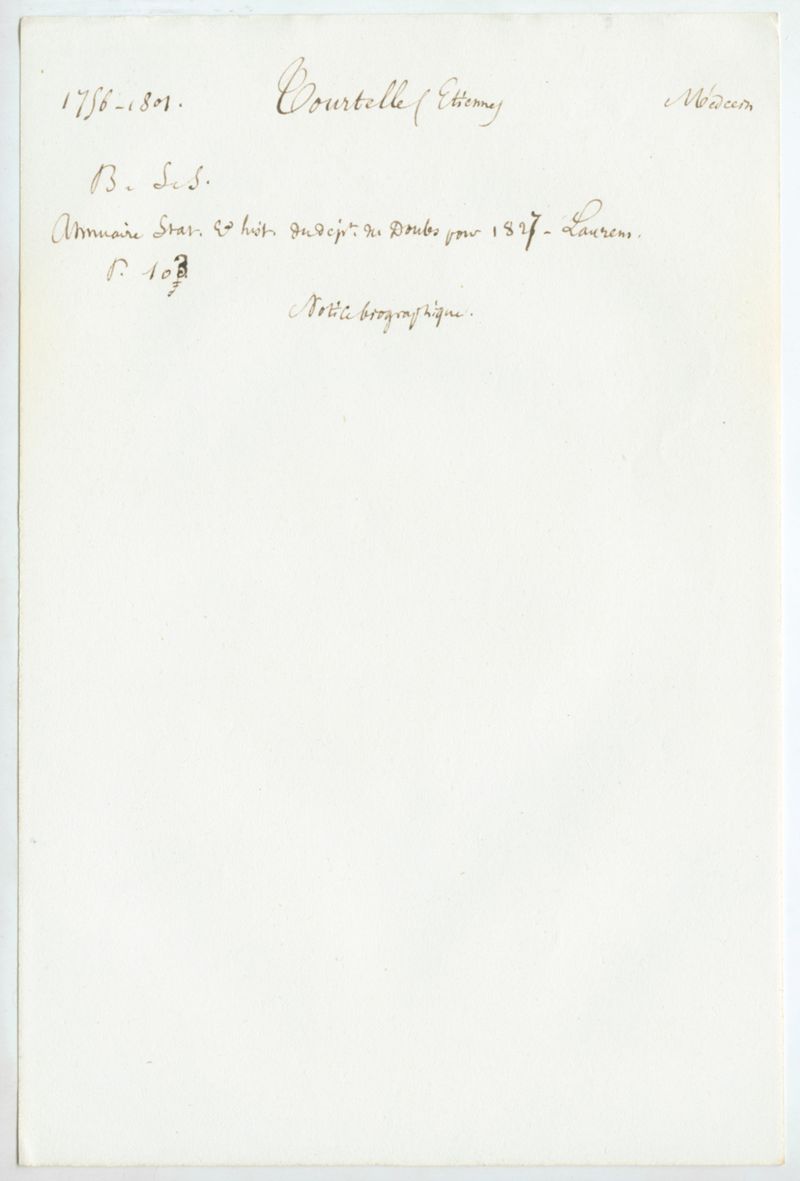 1756-1801. Tourtelle (Etienne) Médecin
B. S. S.
Annuaire Stat. & hist. du dépt. du Doubs pour 1827 - Laurens.
P. 103
Notice biographique.